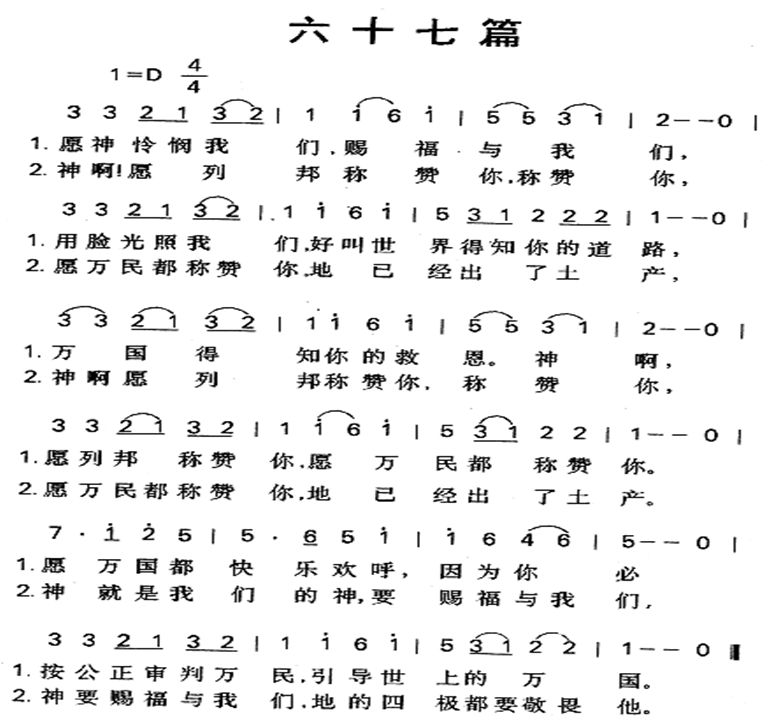 六十七篇
1=D 4/4
3 3 2 1 3 2 | 1 i 6 i | 5 5 3 1 | 2--0 |
1.愿神怜悯我们,赐福与我们,
2.神啊!愿列邦称赞你,称赞你,
3 3 2 1 3 2 | 1 i 6 i | 5 3 1 2 2 2 | 1--0 |
1.用脸光照我们,好叫世界得知你的道路,
2.愿万民都称赞你,地已经出了土产,
3 3 2 1 3 2 | 1 i 6 i | 5 5 3 1 | 2--0 |
1.万国得知你的救恩。神啊,
2.神啊愿列邦称赞你,称赞你,
3 3 2 1 3 2 | 1 i 6 i | 5 3 1 2 2 | 1--0 |
1.愿列邦称赞你,愿万民都称赞你。
2.愿万民都称赞你,地已经出了土产。
7· i 2 5 | 5· 6 5 i | i 6 4 6 | 5--0 |
1.愿万国都快乐欢呼,因为你必
2.神就是我们的神,要赐福与我们,
3 3 2 1 3 2 | 1 i 6 i | 5 3 1 2 2 | 1--0
1.按公正审判万民,引导世上的万国。
2.神要赐福与我们,地的四极都要敬畏他。